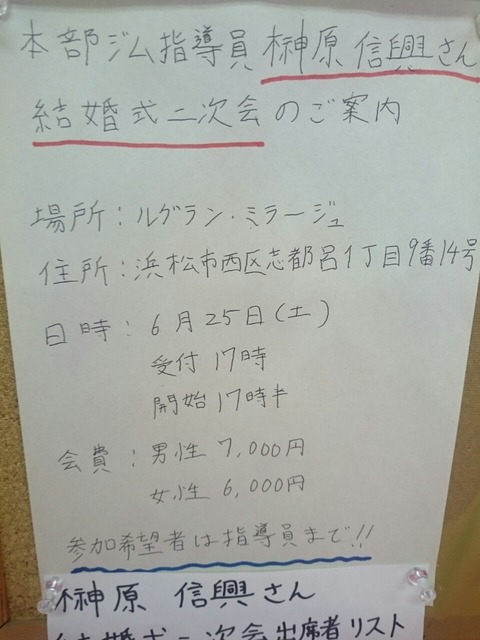 本部ジム指導員榊原信興さん
結婚式二次会のご案内
場所：ルグラン・ミラージュ
住所：浜松市西区志都呂1丁目9番14号
日時：6月25日(土)
受付17時
開始17時半
会費：男性7,000円
女性6,000円
参加希望者は指導員まで!!
榊原 信興さん
結婚式二次会出席者リスト